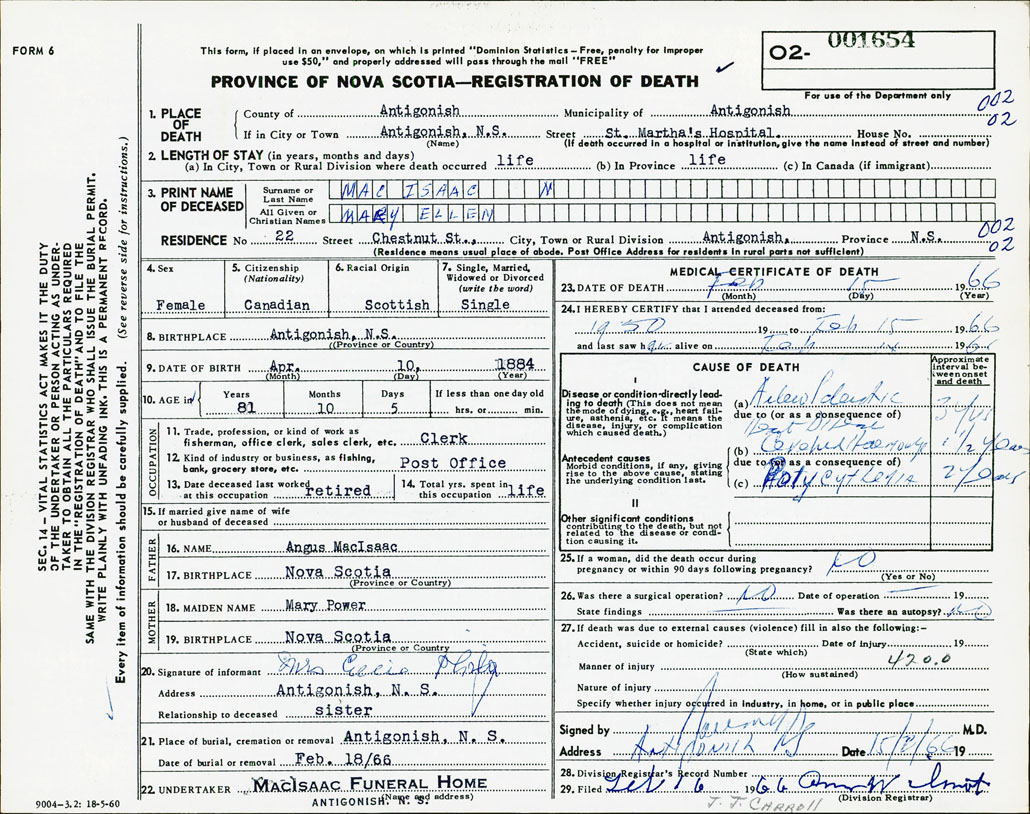 FORM 6
This form, if placed in an envelope, on which is printed "Dominion Statistics – Free, penalty for improper
use $50," and properly addressed will pass through the mail "FREE"
PROVINCE OF NOVA SCOTIA—REGISTRATION OF DEATH
O2- 001654
For use of the Department only
002
02
1. PLACE OF DEATH
County of Antigonish Municipality of Antigonish
If in City or Town Antigonish, N.S. Street St. Martha's Hospital. House No.
(Name) (If death occurred in a hospital or institution, give the name instead of street and number)
2. LENGTH OF STAY (in years, months and days)
(a) In City, Town or Rural Division where death occurred life (b) In Province life (c) In Canada (if immigrant)
3. PRINT NAME OF DECEASED
Surname or Last Name MAC ISAAC N
All Given or Christian Names MARY ELLEN
002
02
RESIDENCE No 22 Street Chestnut St., City, Town or Rural Division Antigonish, Province N.S.
(Residence means usual place of abode. Post Office Address for residents in rural parts not sufficient)
4. Sex
Female
5. Citizenship
(Nationality)
Canadian
6. Racial Origin
Scottish
7. Single, Married, Widowed or Divorced
(write the word)
Single
8. BIRTHPLACE Antigonish, N.S.
(Province or Country)
9. DATE OF BIRTH Apr. 10, 1884
(Month) (Day) (Year)
10. AGE in Years Months Days If less than one day old
81 10 5 hrs. or min.
OCCUPATION
11. Trade, profession, or kind of work as
fisherman, office clerk, sales clerk, etc. Clerk
12. Kind of industry or business, as fishing,
bank, grocery store, etc. Post Office
13. Date deceased last worked
at this occupation retired
14. Total yrs. spent in
this occupation life
15. If married give name of wife
or husband of deceased
FATHER
16. NAME Angus MacIsaac
17. BIRTHPLACE Nova Scotia
(Province or Country)
MOTHER
18. MAIDEN NAME Mary Power
19. BIRTHPLACE Nova Scotia
(Province or Country)
20. Signature of informant Mrs
Address Antigonish, N. S.
Relationship to deceased sister
21. Place of burial, cremation or removal Antigonish, N. S.
Date of burial or removal Feb. 18/66
22. UNDERTAKER MacIsaac Funeral Home
(Name and address)
ANTIGONISH, N. S.
MEDICAL CERTIFICATE OF DEATH
23. DATE OF DEATH Feb 15 1966
(Month) (Day) (Year)
24. I HEREBY CERTIFY that I attended deceased from:
1950 19 to Feb 15 1966
and last saw her alive on Feb 14 1966
CAUSE OF DEATH
Approximate interval between onset and death
I
Disease or condition directly leading to death (This does not mean the mode of dying, e.g., heart failure, asthenia, etc. It means the disease, injury, or complication which caused death.)
(a) 3 yrs
due to (or as a consequence of)
Heart Disease
Antecedent causes
Morbid conditions, if any, giving rise to the above cause, stating the underlying condition last.
(b)
due to (or as a consequence of)
(c) Polycythemia
II
Other significant conditions
contributing to the death, but not related to the disease or condition causing it.
25. If a woman, did the death occur during
pregnancy or within 90 days following pregnancy? NO
(Yes or No)
26. Was there a surgical operation? NO Date of operation —
State findings — Was there an autopsy? No
27. If death was due to external causes (violence) fill in also the following:–
Accident, suicide or homicide? Date of injury 19
(State which)
420.0
Manner of injury
(How sustained)
Nature of injury
Specify whether injury occurred in industry, in home, or in public place
Signed by M.D.
Address Antigonish NS Date 15/2/66 19
28. Division Registrar's Record Number
29. Filed Feb 16 1966
(Division Registrar)
J. J. CARROLL
9004-3.2: 18-5-60
SEC. 14 – VITAL STATISTICS ACT MAKES IT THE DUTY
OF THE UNDERTAKER OR PERSON ACTING AS UNDER-
TAKER TO OBTAIN ALL THE PARTICULARS REQUIRED
IN THE "REGISTRATION OF DEATH" AND TO FILE THE
SAME WITH THE DIVISION REGISTRAR WHO SHALL ISSUE THE BURIAL PERMIT.
WRITE PLAINLY WITH UNFADING INK. THIS IS A PERMANENT RECORD.
Every item of information should be carefully supplied. (See reverse side for instructions.)